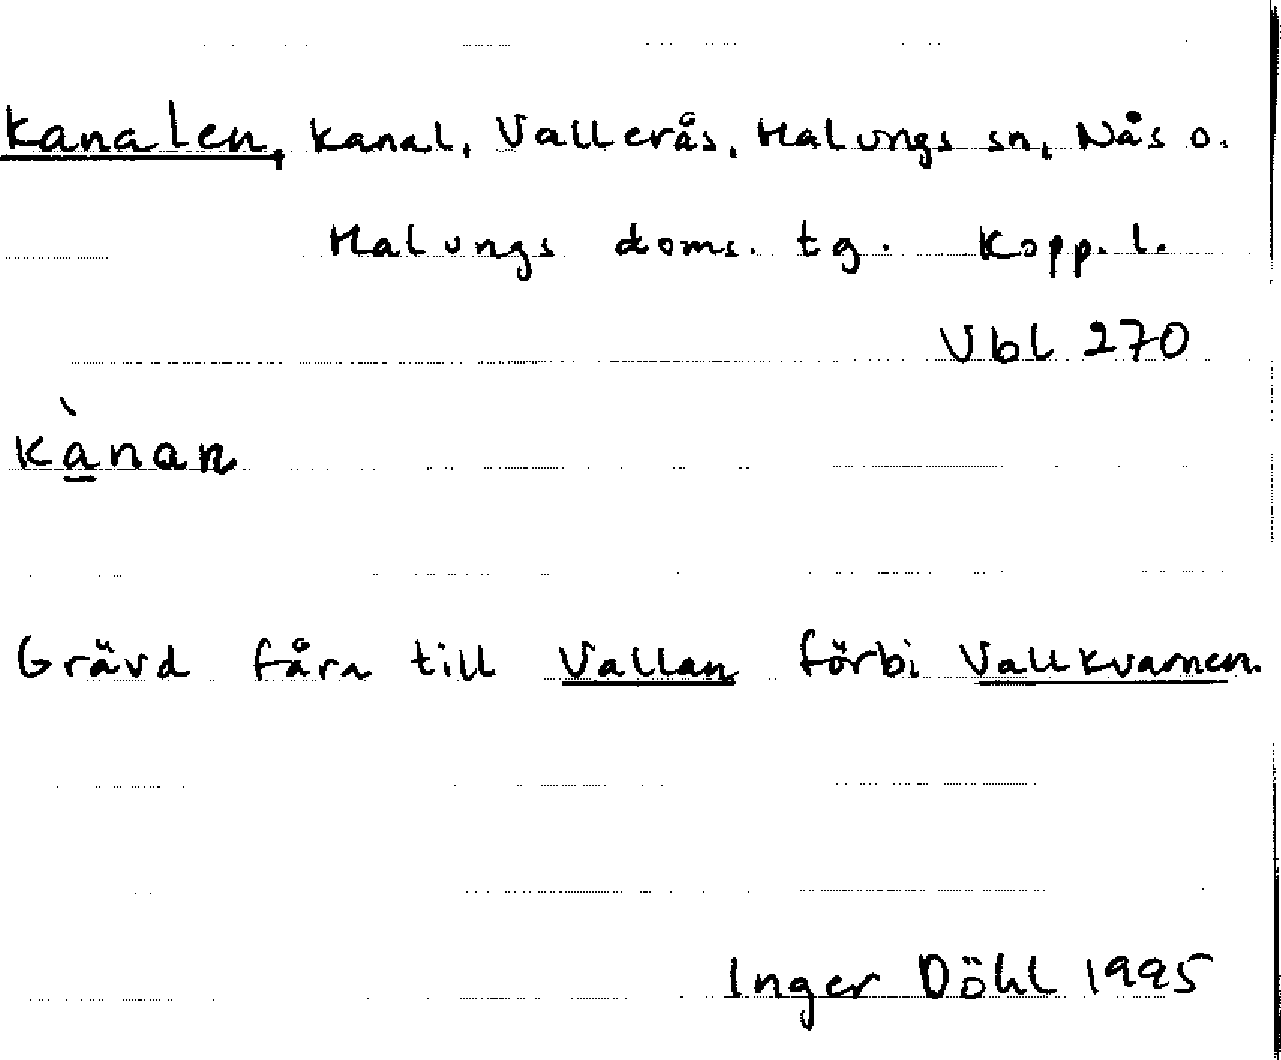 Kanalen, kanal, Vallerås, Malungs sn, Nås o.
Malungs doms. tg. Kopp. l.
Vbl 270
kànan
Grävd fåra till Vallan förbi Vallkvarnen.
Inger Döhl 1995